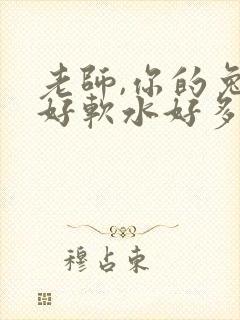 老師,你的兔
好軟水好多
穆占東